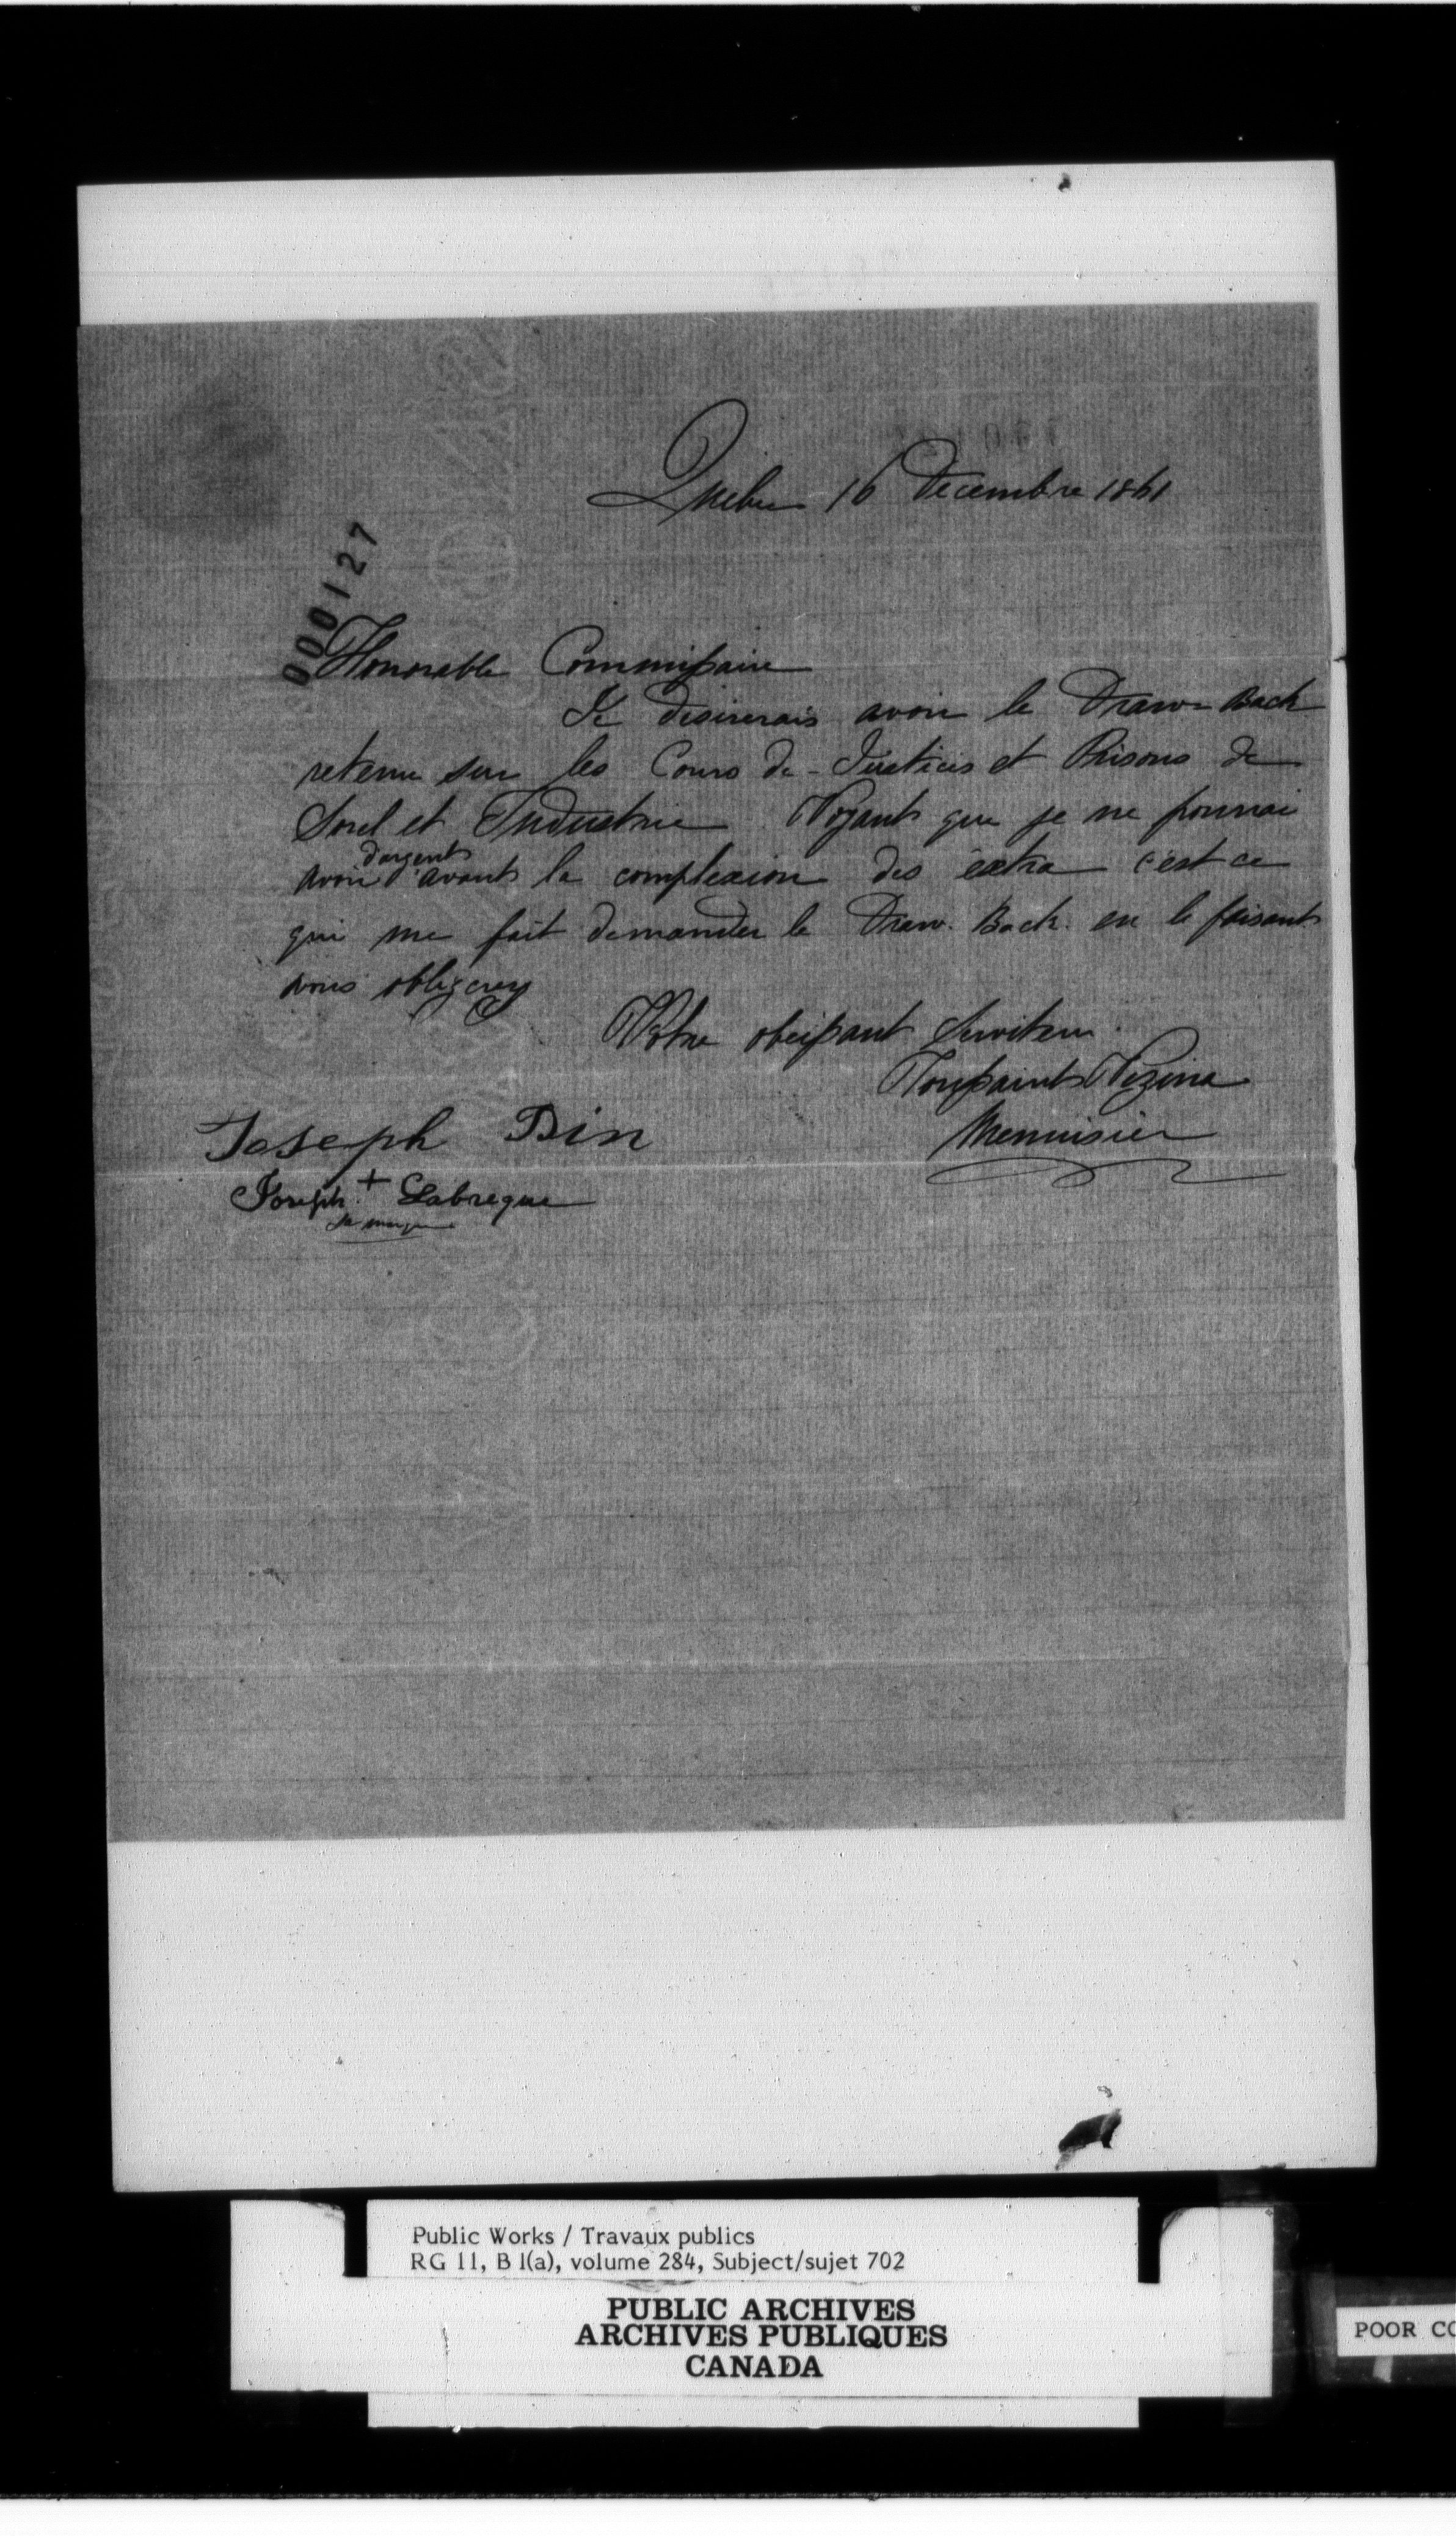 Quebec 16 Decembre 1861
000127
Honorable Commissaire
Je desirerais avoir le Draw-Back
retenu sur les Cours de-Justices et Prisons de
Sorel et Industrie Voyant que je ne pourrai
avoir d'argent avant la complexion des extra c'est ce
qui me fait demander le Draw. Back. en le faisant
vous obligerez
Votre obeissant Serviteur
Toussaint Vezina
Menuisier
Joseph Bin
Joseph + Labreque
sa marque
Public Works / Travaux publics
RG 11, B 1(a), volume 284, Subject/sujet 702
PUBLIC ARCHIVES
ARCHIVES PUBLIQUES
CANADA
POOR CO